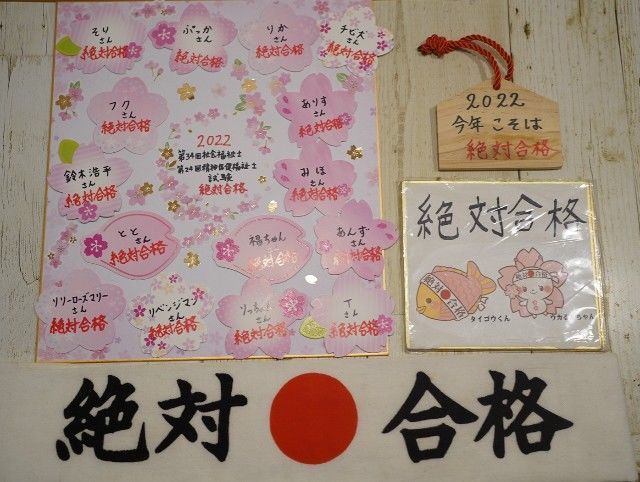 そり
さん
絶対合格
ぷっか
さん
絶対合格
りか
さん
絶対合格
チビ犬
さん
絶対合格
フク
さん
絶対合格
ありす
さん
絶対合格
2022
第34回社会福祉士
第24回精神保健福祉士
試験
絶対合格
鈴木浩平
さん
絶対合格
みほ
さん
絶対合格
とと
さん
絶対合格
福ちゃん
絶対合格
あんず
さん
絶対合格
リリーローズマリー
さん
絶対合格
リベンジマン
さん
絶対合格
さん
絶対合格
T
さん
絶対合格
2022
今年こそは
絶対合格
絶対合格
絶対合格
タイゴウくん
絶対合格
ちゃん
絶対合格